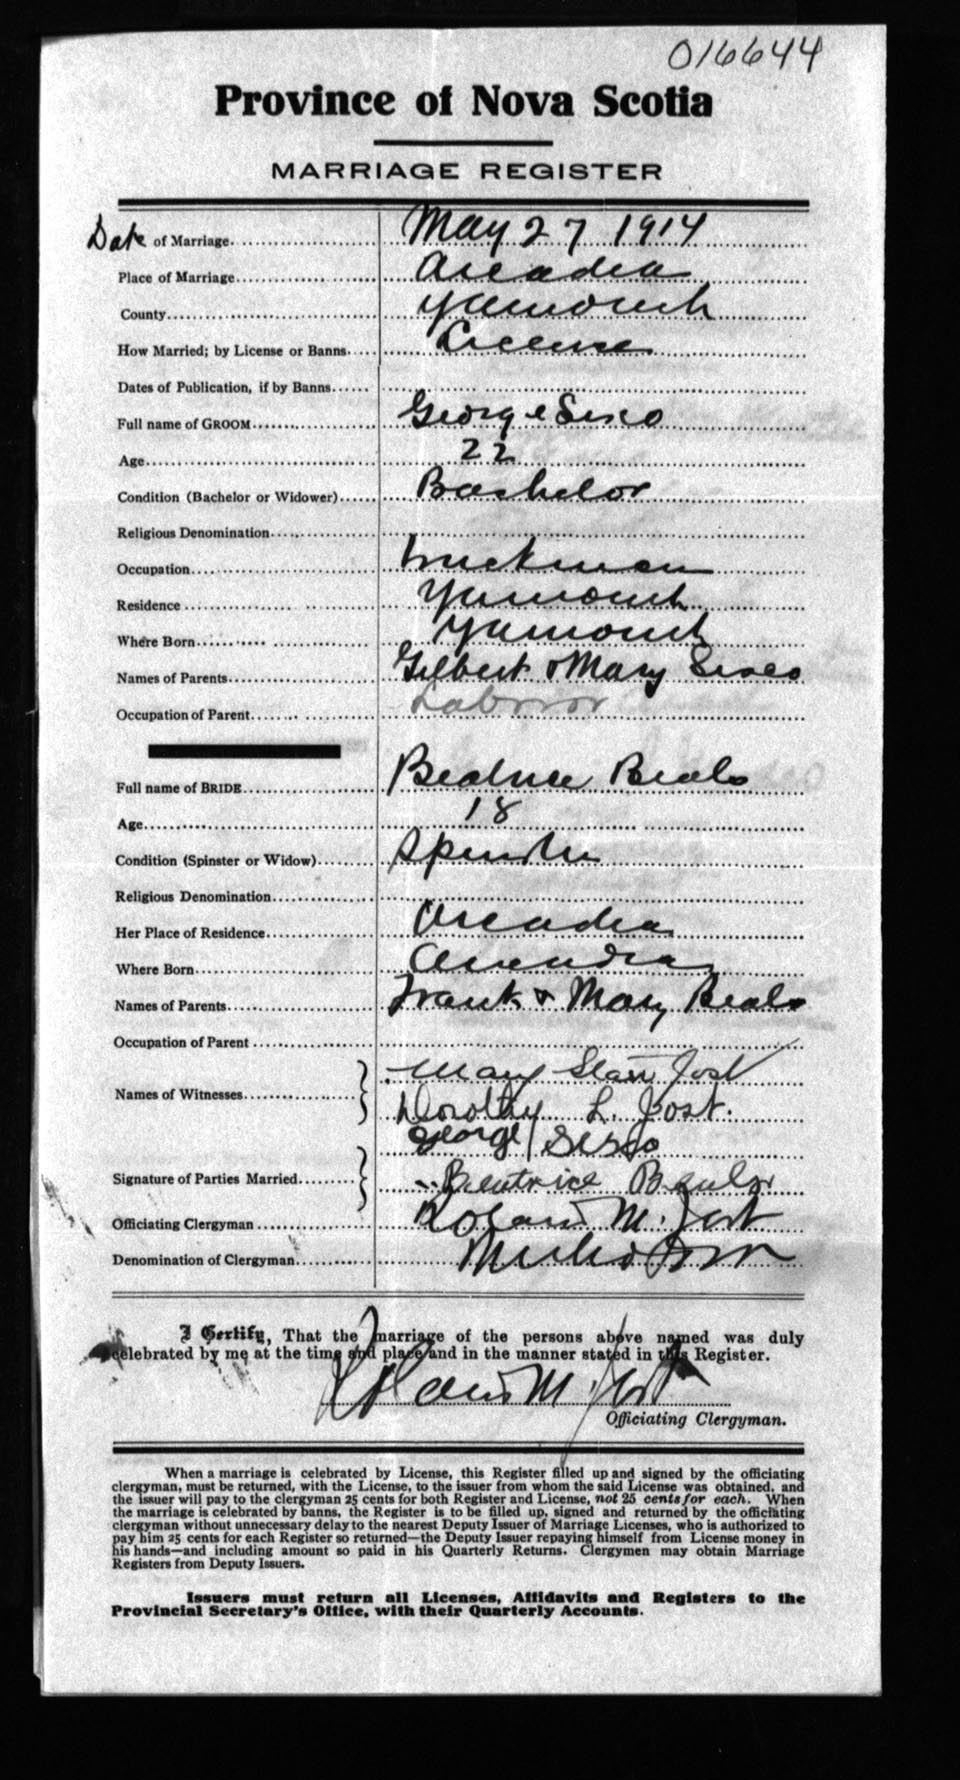 016644
Province of Nova Scotia
MARRIAGE REGISTER
Date of Marriage May 27 1914
Place of Marriage Arcadia
County Yarmouth
How Married; by License or Banns License
Dates of Publication, if by Banns
Full name of GROOM George Sisco
Age 22
Condition (Bachelor or Widower) Bachelor
Religious Denomination
Occupation truckman
Residence Yarmouth
Where Born Yarmouth
Names of Parents Gilbert & Mary Sisco
Occupation of Parent Laborer
Full name of BRIDE Beatrice Beals
Age 18
Condition (Spinster or Widow) Spinster
Religious Denomination
Her Place of Residence Arcadia
Where Born Arcadia
Names of Parents Frank & Mary Beals
Occupation of Parent
Names of Witnesses Mary Starr Jost
Dorothy L. Jost.
George Sisco
Signature of Parties Married Beatrice Beals
Officiating Clergyman Roland M. Jost
Denomination of Clergyman Methodism
I Certify, That the marriage of the persons above named was duly
celebrated by me at the time and place and in the manner stated in this Register.
Roland M. Jost
Officiating Clergyman.
When a marriage is celebrated by License, this Register filled up and signed by the officiating
clergyman, must be returned, with the License, to the issuer from whom the said License was obtained, and
the issuer will pay to the clergyman 25 cents for both Register and License, not 25 cents for each. When
the marriage is celebrated by banns, the Register is to be filled up, signed and returned by the officiating
clergyman without unnecessary delay to the nearest Deputy Issuer of Marriage Licenses, who is authorized to
pay him 25 cents for each Register so returned—the Deputy Issuer repaying himself from License money in
his hands—and including amount so paid in his Quarterly Returns. Clergymen may obtain Marriage
Registers from Deputy Issuers.
Issuers must return all Licenses, Affidavits and Registers to the
Provincial Secretary's Office, with their Quarterly Accounts.